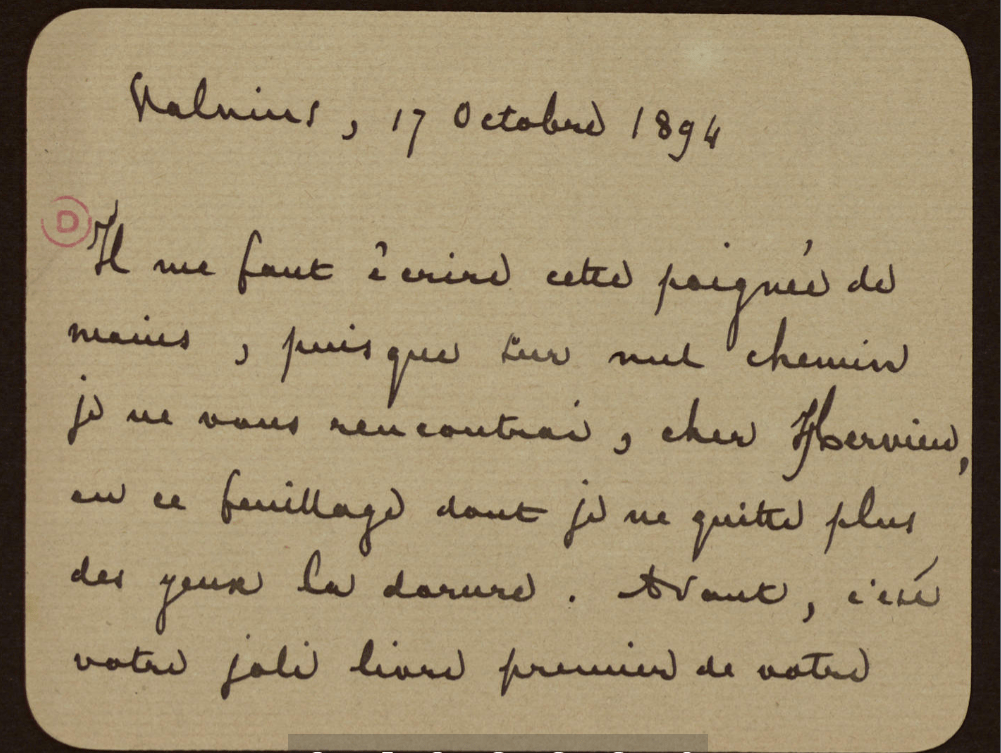 Valvins, 17 Octobre 1894
D
Il me faut écrire cette poignée de
mains, puisque sur nul chemin
je ne vous rencontrai, cher Hervieu,
en ce feuillage dont je ne quitte plus
des yeux la dorure. Avant, c'est
votre joli livre premier de votre